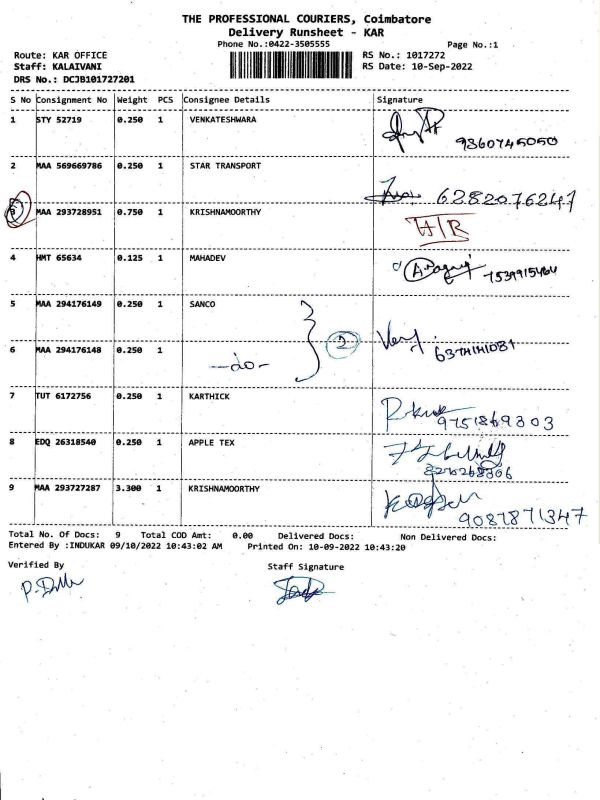 THE PROFESSIONAL COURIERS, Coimbatore
Delivery Runsheet - KAR
Phone No.:0422-3505555 Page No.:1
Route: KAR OFFICE RS No.: 1017272
Staff: KALAIVANI RS Date: 10-Sep-2022
DRS No.: DCJB101727201
S No Consignment No Weight PCS Consignee Details Signature
1 STY 52719 0.250 1 VENKATESHWARA
9360745050
2 MAA 569669786 0.250 1 STAR TRANSPORT
6282076247
3 MAA 293728951 0.750 1 KRISHNAMOORTHY H/R
4 HMT 65634 0.125 1 MAHADEV
7539915464
5 MAA 294176149 0.250 1 SANCO
2
6 MAA 294176148 0.250 1
-do-
7 TUT 6172756 0.250 1 KARTHICK
9751869303
8 EDQ 26318540 0.250 1 APPLE TEX
9 MAA 293727287 3.300 1 KRISHNAMOORTHY
9087871347
Total No. Of Docs: 9 Total COD Amt: 0.00 Delivered Docs: Non Delivered Docs:
Entered By :INDUKAR 09/10/2022 10:43:02 AM Printed On: 10-09-2022 10:43:20
Verified By Staff Signature